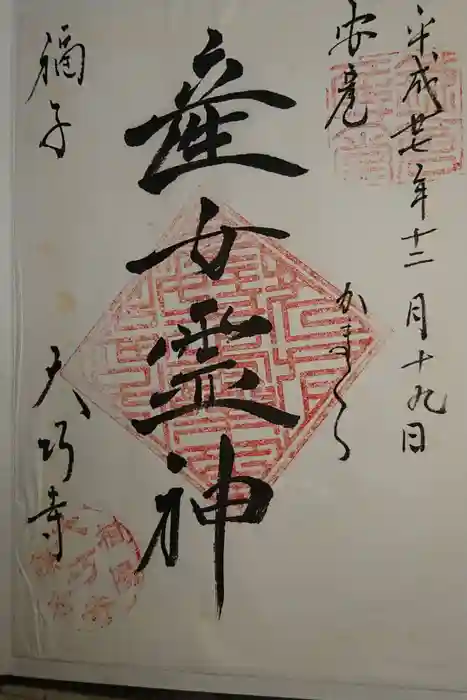 平成廿七年十二月十九日
安産
かまくら
産女霊神
福子
大巧寺